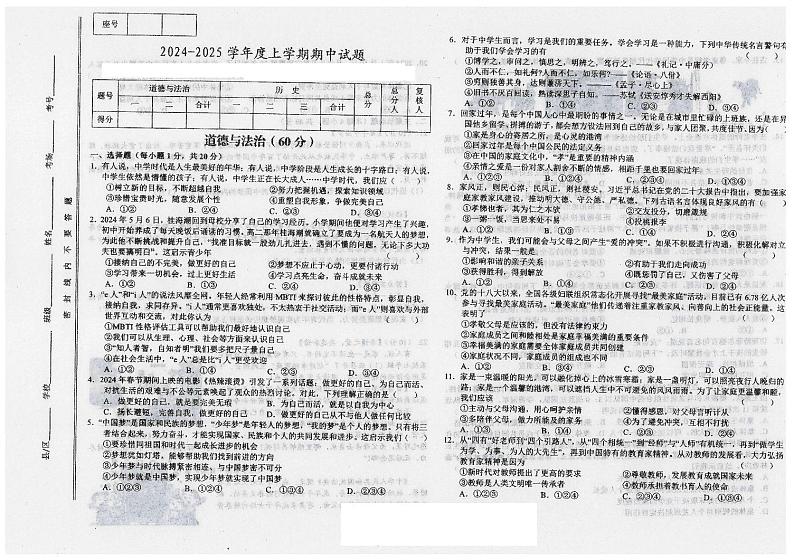 座号
2024-2025 学年度上学期期中试题
题号 道德与法治 历 史 总分 总分人 复核人
一 二 合计 一 二 三 合计
得分
道德与法治（60 分）
一、选择题（每小题 1 分，共 20 分）
1. 有人说，中学时代是人生最美好的年华；有人说，中学阶段是人生成长的十字路口；有人说，
中学生依然是懵懂的孩子；有人说，中学生正在长大成人……中学时代，我们应（ ）
①树立新的目标，不断超越自我 ②努力把握机遇，探索知识领域
③珍惜宝贵时光，随意发展个性 ④重塑自我形象，争做完美自己
A. ①② B. ①④ C. ②③ D. ③④
2. 2024 年 5 月 6 日，桂海潮回到母校分享了自己的学习经历。小学期间他便对学习产生了兴趣，
初中开始养成了每天晚饭后诵读的习惯，高二那年桂海潮就确立了要成为一名航天人的梦想，
为此他不断挑战和提升自己，“找准目标就一股劲儿扎进去，遇到不懂的问题，无论下多大功
夫也要搞明白”。这启示青少年（ ）
①接纳自己的不完美，做更好的自己 ②梦想不应止于心动，更要付诸行动
③学习带来一切机会，过上更好生活 ④学习点亮生命，奋斗成就未来
A. ①② B. ①③ C. ②④ D. ③④
3. “e 人”和“i 人”的说法风靡全网，年轻人经常利用 MBTI 来探讨彼此的性格特点，彰显自我，
接纳自我，求同存异。“i 人”通常更喜欢独处，不太热衷于社交活动；而“e 人”则喜欢与外部
世界互动和交流，对此你认为（ ）
①MBTI 性格评估工具可以帮助我们最好地认识自己
②我们可以从生理、心理、社会等方面来认识自己
③“知人者智，自知者明”我们要多把尺子量自己
④在社会生活中，“e 人”总是比“i 人”更受欢迎
A. ①② B. ①④ C. ②③ D. ③④
4. 2024 年春节期间上映的电影《热辣滚烫》引发了一系列话题：做更好的自己、为自己而活、
对抗生活的艰难与不公等元素唤起了观众的热烈讨论。对此，下列理解正确的是（ ）
A. 做更好的自己，就是要完美无瑕 B. 为自己而活，就是以自我为中心
C. 扬长避短，完善自我，做更好的自己 D. 做更好的自己从不与他人做任何比较
5. “中国梦”是国家和民族的梦想，“少年梦”是年轻人的梦想，“我的梦”是个人的梦想。只有将三
者结合起来，努力奋斗，才能实现国家、民族和个人的共同发展和进步。这启示我们（ ）
①要珍惜同祖国和时代一起成长进步的机会
②梦想犹如灯塔，能够帮助我们找到前进的方向
③少年梦与时代脉搏紧密相连、与中国梦密不可分
④少年梦就是中国梦，实现少年梦就实现了中国梦
A. ①②③ B. ①②④ C. ①③④ D. ②③④
6. 对于中学生而言，学习是我们的重要任务。学会学习是一种能力，下列中华传统名言警句有
助于我们学会学习的有（ ）
①博学之，审问之，慎思之，明辨之，笃行之。——《礼记·中庸分》
②人而不仁，如礼何?人而不仁，如乐何?——《论语·八佾》
③穷则独善其身，达则兼济天下。——《孟子·尽心上》
④旧书不厌百回读，熟读深思子自知。——苏轼《送安惇秀才失解西阳》
A. ①② B. ①④ C. ②③ D. ③④
7. 回家过年，是每个中国人心中最期盼的事情之一。无论是在城市里忙碌的上班族，还是在异
国他乡留学、拼搏的游子，都会想方设法回到自己的故乡，与家人团聚，共度佳节，因为（ ）
①家是身心的寄居之所，是心灵的港湾
②回家过年是每个中国公民的法定义务
③在中国的家庭文化中，“孝”是重要的精神内涵
④亲情之爱是一份对家人割舍不断的情感，相距千里也要回家过年
A. ①②③ B. ①②④ C. ①③④ D. ②③④
8. 家风正，则民心淳；民风正，则社稷安。习近平总书记在党的二十大报告中指出，要加强家
庭家教家风建设，推动明大德、守公德、严私德。下列古语名言体现良好家风的有（ ）
①孝悌也者，其为仁之本欤 ②交友投分，切磨箴规
③一粥一饭，当思来处不易 ④祝福报李
A. ①② B. ①③ C. ②④ D. ③④
9. 作为中学生，我们可能会与父母之间产生“爱的冲突”。如果不积极进行沟通，积极化解对立
与冲突，结果一般是（ ）
①影响和谐的亲子关系 ②有助于我们走向成功
③获得胜利，得到解放 ④既惩罚了自己，又伤害了父母
A. ①② B. ①④ C. ②③ D. ③④
10. 党的十八大以来，全国各级妇联组织常态化开展寻找“最美家庭”活动。目前已有 6.78 亿人次
参与寻找最美家庭活动。“最美家庭”他们传递着注重家教家风、向善向上的社会正能量。这
表明了（ ）
①孝敬父母是应该的，但没有法律的束力
②家庭成员之间和睦相处是家庭幸福美满的重要条件
③幸福美满的家庭需要全体家庭成员共同创建
④家庭状况不同，家庭成员的组成也不同
A. ①② B. ①④ C. ②③ D. ③④
11. 家是一束温暖的阳光，可以融化掉心上的冰雪寒霜；家是一盏明灯，可以照亮夜行人晚归的
路；家是一个温馨的港湾，可以遮挡人生中不可避免的风风雨雨。为了让家庭更温馨和睦，
我们应该（ ）
①主动与父母沟通，用心呵护亲情 ②懂得感恩，对父母言听计从
③多陪伴父母，做力所能及的家务 ④为了避免冲突，互相不打扰
A. ①② B. ①③ C. ②④ D. ③④
12. 从“四有”好老师到“四个引路人”，从“四个相统一”到“经师”与“人师”有机统一，再到“做学生
为学、为事、为人的大先生”，再到中国特有的教育家精神，从对教师的发展看，大力弘扬
教育家精神是因为（ ）
①新时代对教师提出了更高的要求 ②尊敬教师，发展教育成就国家未来
③教师是人类文明唯一传承者 ④教师承担着教书育人的使命
A. ①②③ B. ①②④ C. ①③④ D. ②③④
县/区
学校
班级
姓名
考场
考号
密 封 线 内 不 要 答 题